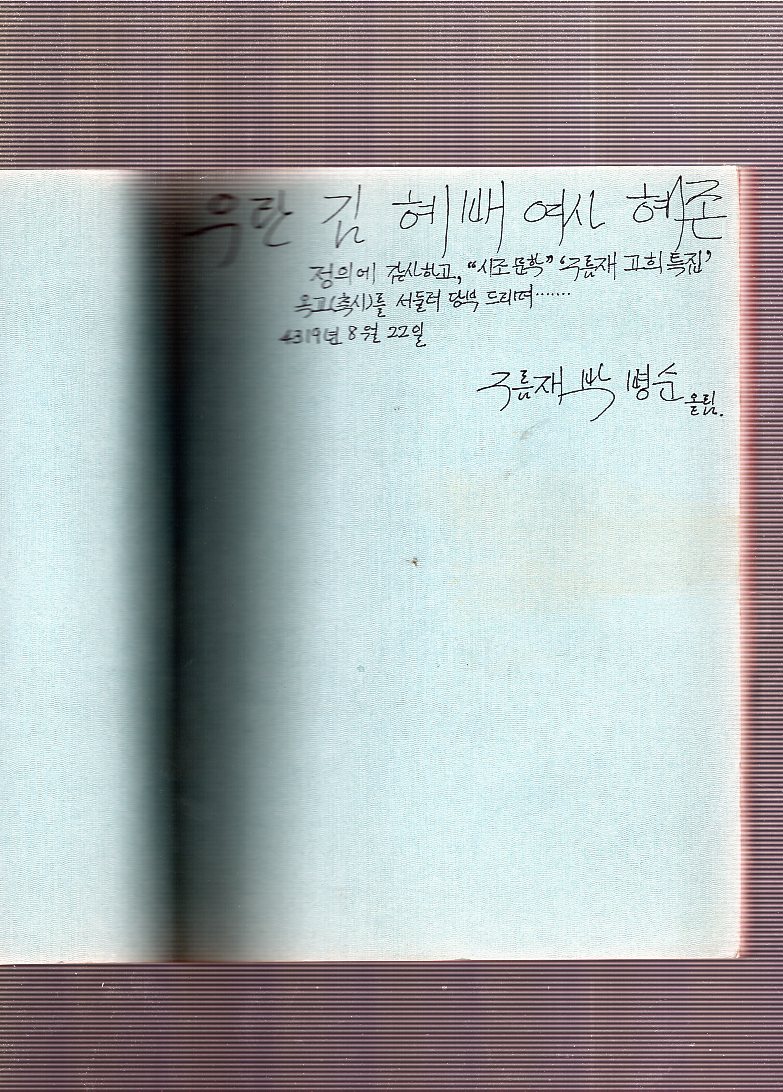 우란 김 혜배 여사 혜존
정의에 감사하고, “시조문학” ‘구름재 고희 특집’
옥고(축시)를 서둘러 당부 드리며·······
4319년 8월 22일
구름재 박 병순 올림.